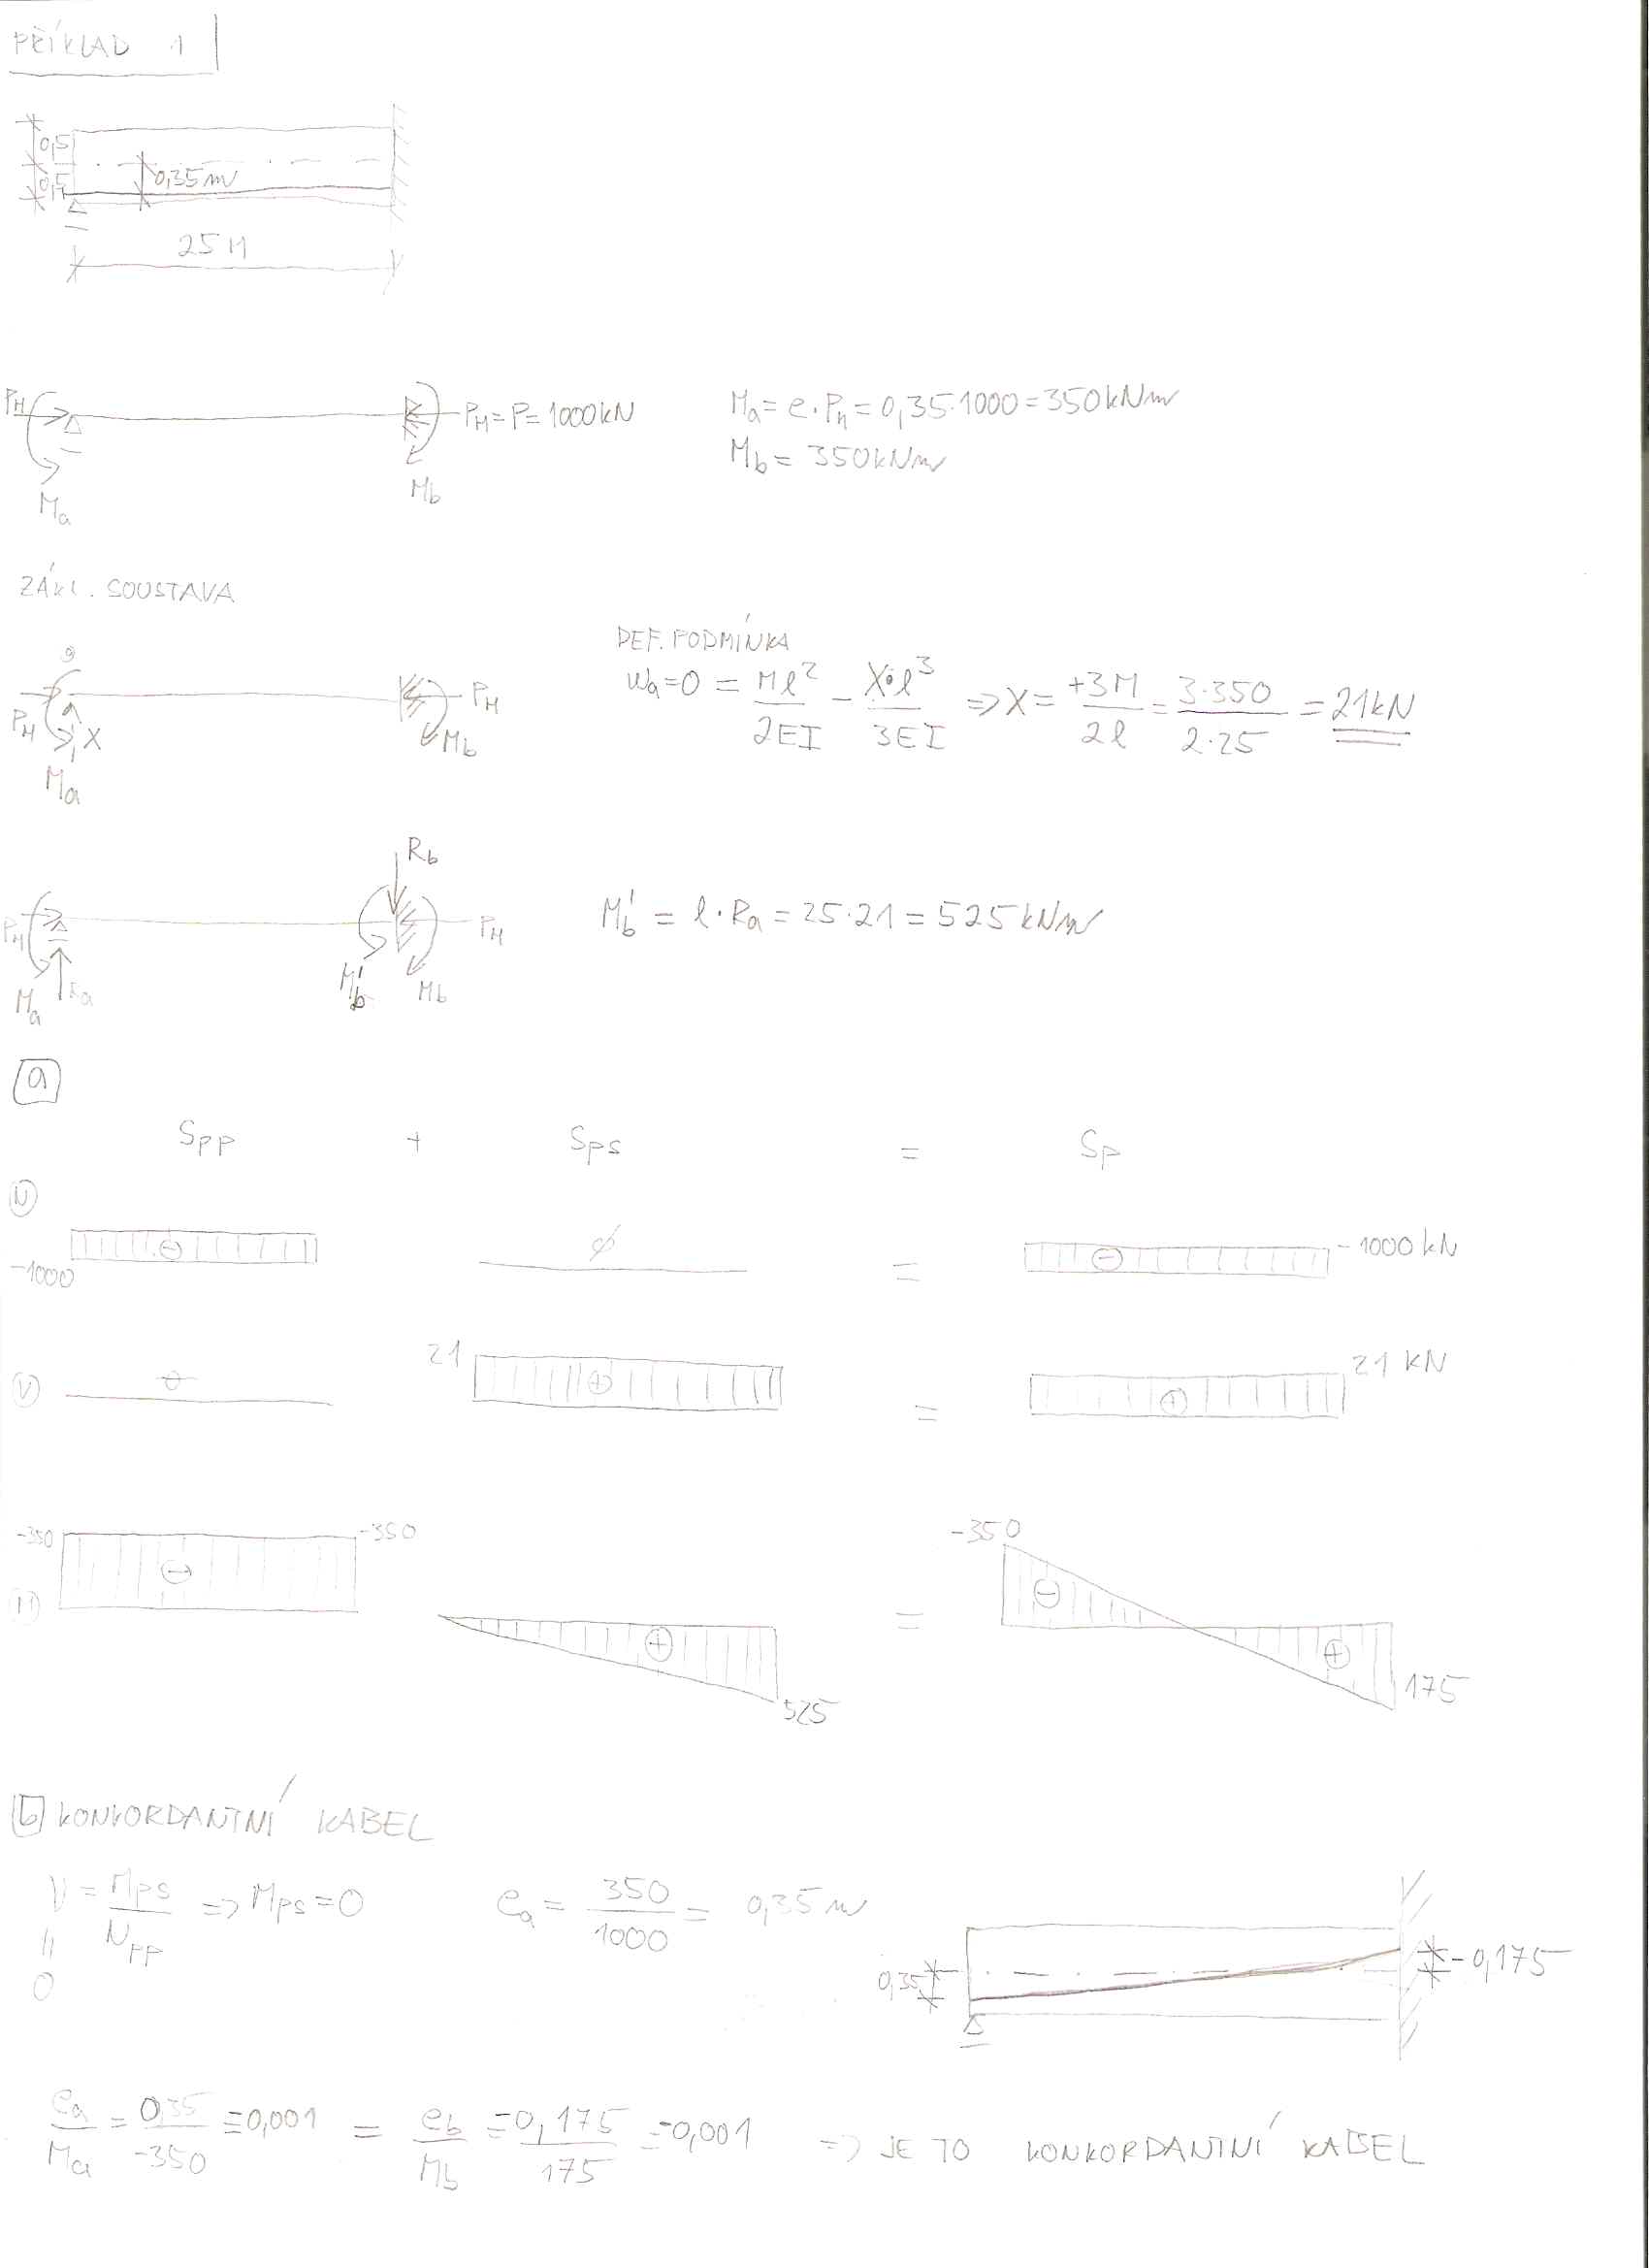 PŘÍKLAD 1
0,5
0,5
0,35m
25M
PH
PH=P=1000kN
Ma
Mb
Ma=e.Ph=0,35.1000=350kNm
Mb=350kNm
ZÁKL. SOUSTAVA
DEF. PODMÍNKA
wa=0 = Ml²/2EI - X·l³/3EI => X = +3M/2l = 3·350/2·25 = 21kN
PH
X
Ma
PH
Mb
Rb
PH
Ma
Ra
M'b
Mb
PH
M'b = l·Ra = 25·21 = 525kNm
a
Spp + Sps = Sp
N
-1000
ø
=
-1000 kN
V
0
21
+
=
+
21 kN
M
-350
-
-350
+
525
=
-350
-
+
175
b KONKORDANTNÍ KABEL
V = Mps/Npp => Mps=0
ea = 350/1000 = 0,35m
=
0
0,35
-0,175
ea/Ma = 0,35/-350 = -0,001 = eb/Mb = -0,175/175 = -0,001 => JE TO KONKORDANTNÍ KABEL